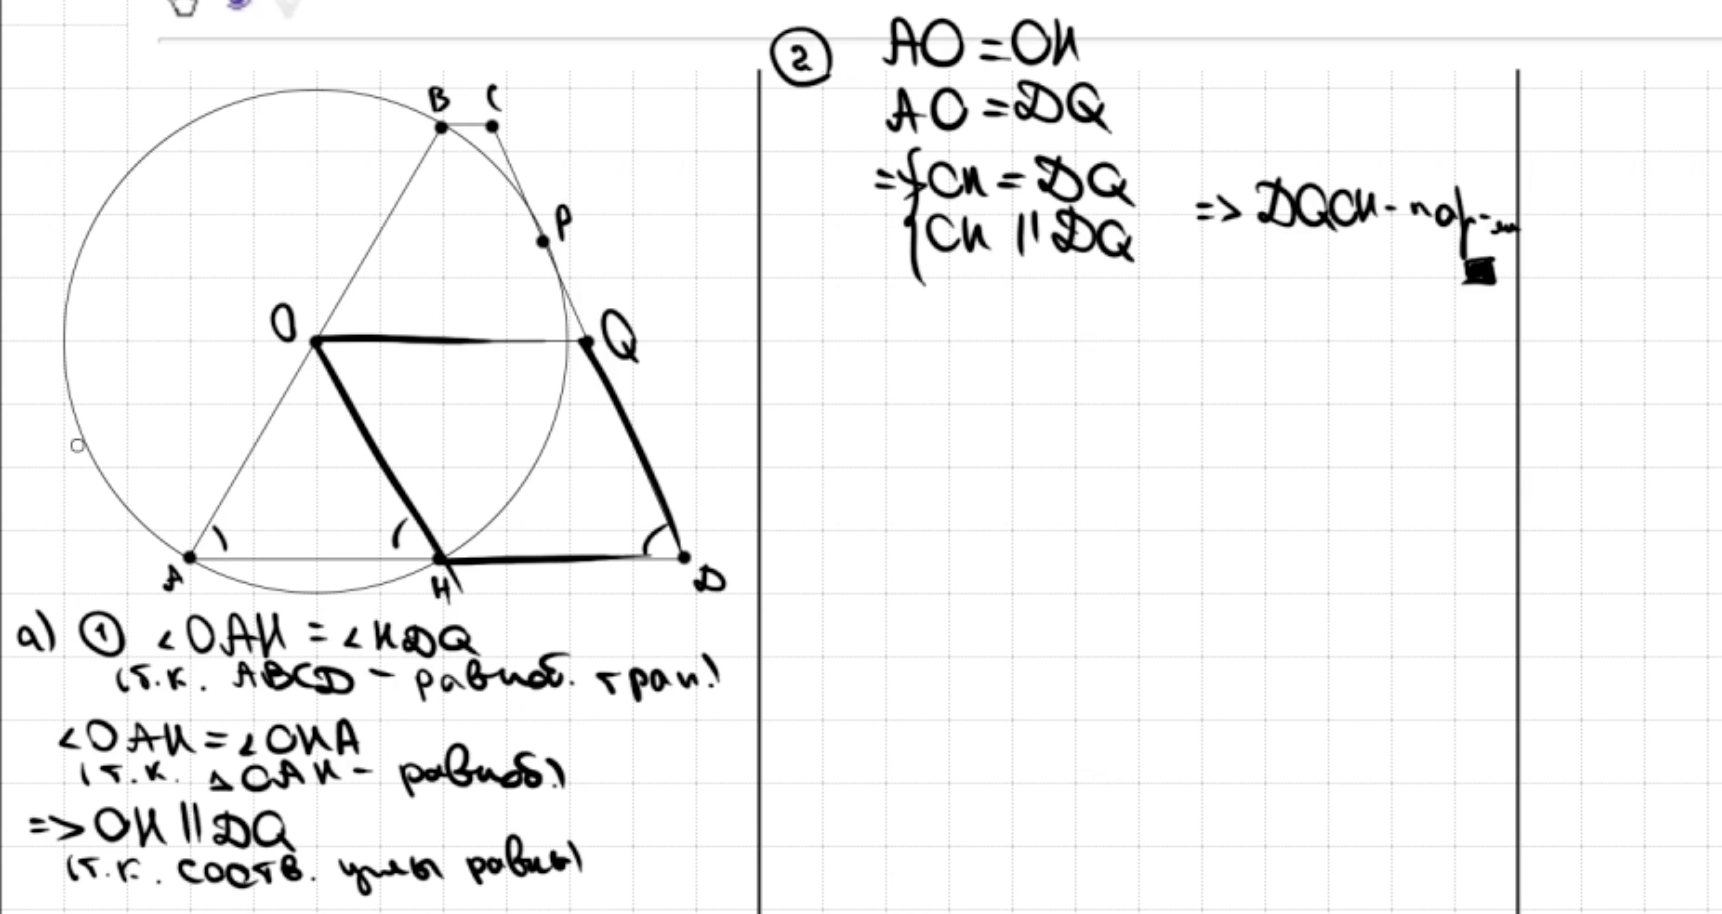 B C
P
O
Q
A
H
D
а) ① ∠OAH = ∠HDQ
(т.к. ABCD - равноб. трап.)
∠OAH = ∠OHA
(т.к. △OAH - равноб.)
=> OH || DQ
(т.к. соотв. углы равны)
② AO = OH
AO = DQ
=> { OH = DQ
OH || DQ => DQOH - пар-м